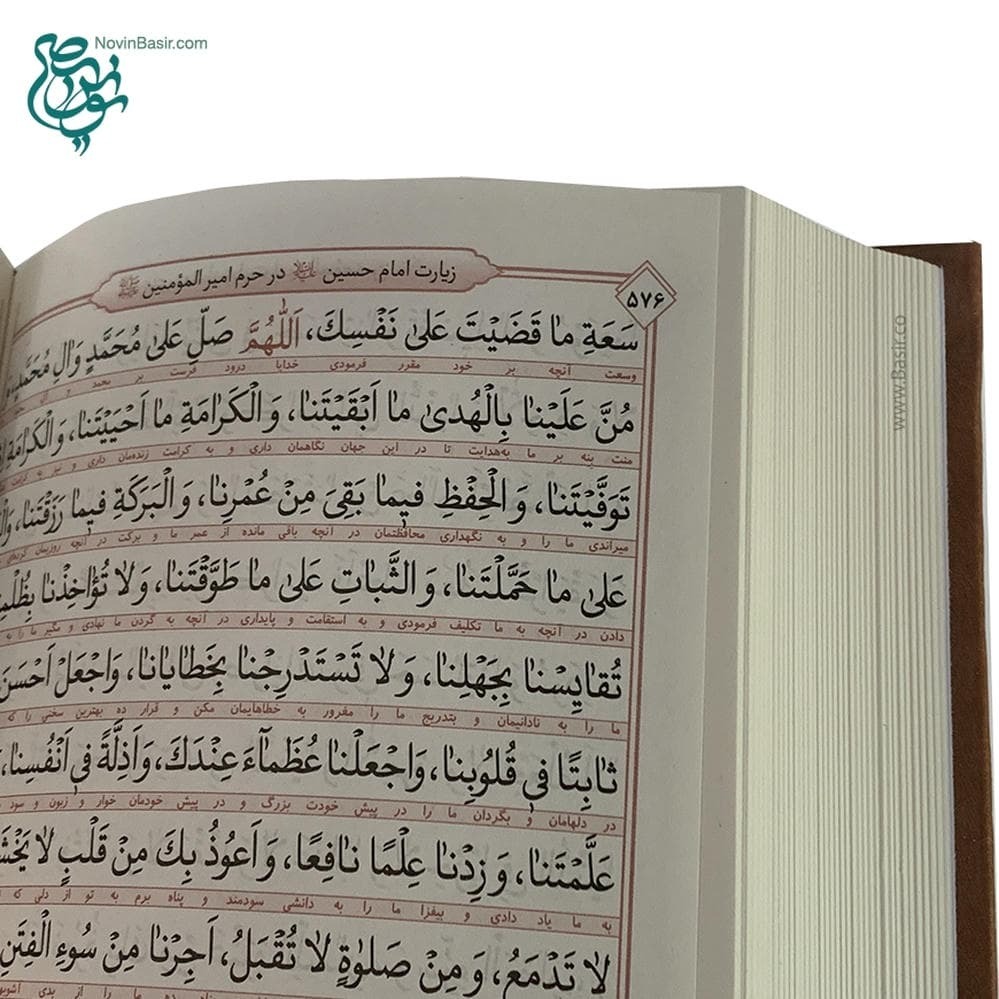 NovinBasir.com
زیارت امام حسین در حرم امیر المؤمنین
۵۷۶
سَعَةِ مٰا قَضَیْتَ عَلیٰ نَفْسِكَ، اَللّٰهُمَّ صَلِّ عَلیٰ مُحَمَّدٍ وَاٰلِ مُحَمَّدٍ،
وسعت آنچه بر خود مقرر فرمودی خدایا درود فرست بر محمد و آل
مُنَّ عَلَیْنٰا بِالْهُدیٰ مٰا اَبْقَیْتَنٰا، وَ الْکَرٰامَةِ مٰا اَحْیَیْتَنٰا، وَ الْکَرٰامَةِ
منت بنه بر ما به‌هدایت تا در این جهان نگاهمان داری و به کرامت زنده‌مان داری و نیز به کرامت
تَوَفَّیْتَنٰا، وَ الْحِفْظِ فیمٰا بَقِیَ مِنْ عُمْرِنٰا، وَ الْبَرَکَةِ فیمٰا رَزَقْتَنٰا،
میراندی ما را و به نگهداری محافظتمان در آنچه باقی مانده از عمر ما و برکت در آنچه روزیمان کرده‌ای
عَلیٰ مٰا حَمَّلْتَنٰا، وَ الثَّبٰاتِ عَلیٰ مٰا طَوَّقْتَنٰا، وَ لاٰ تُؤٰاخِذْنٰا بِظُلْمِ
دادن در آنچه به ما تکلیف فرمودی و به استقامت و پایداری در آنچه به گردن ما نهادی و مگیر ما را به
تُقٰایِسْنٰا بِجَهْلِنٰا، وَ لاٰ تَسْتَدْرِجْنٰا بِخَطٰایٰانٰا، وَاجْعَلْ اَحْسَنَ
ما را به نادانیمان و بتدریج ما را مغرور به خطاهایمان مکن و قرار ده بهترین سخنی را که
ثٰابِتًا فی قُلُوبِنٰا، وَاجْعَلْنٰا عُظَمٰٓاءَ عِنْدَكَ، وَ اَذِلَّةً فی اَنْفُسِنٰا،
در دلهامان و بگردان ما را در پیش خودت بزرگ و در پیش خودمان خوار و زبون و سود
عَلَّمْتَنٰا، وَ زِدْنٰا عِلْمًا نٰافِعًا، وَ اَعُوذُ بِكَ مِنْ قَلْبٍ لاٰ یَخْشَ
به ما یاد دادی و بیفزا ما را به دانشی سودمند و پناه برم به تو از دلی که
لاٰ تَدْمَعُ، وَ مِنْ صَلوٰةٍ لاٰ تُقْبَلُ، اَجِرْنٰا مِنْ سُوءِ الْفِتَنِ
ما را از بدی
www.Basir.co